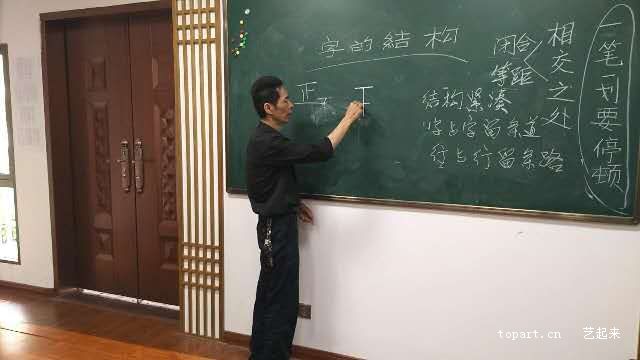 字的結构
正
闭合
等距
相交之处
一笔一划要停顿
结构紧凑
字与字留条道
行与行留条路
topart.cn 艺起来